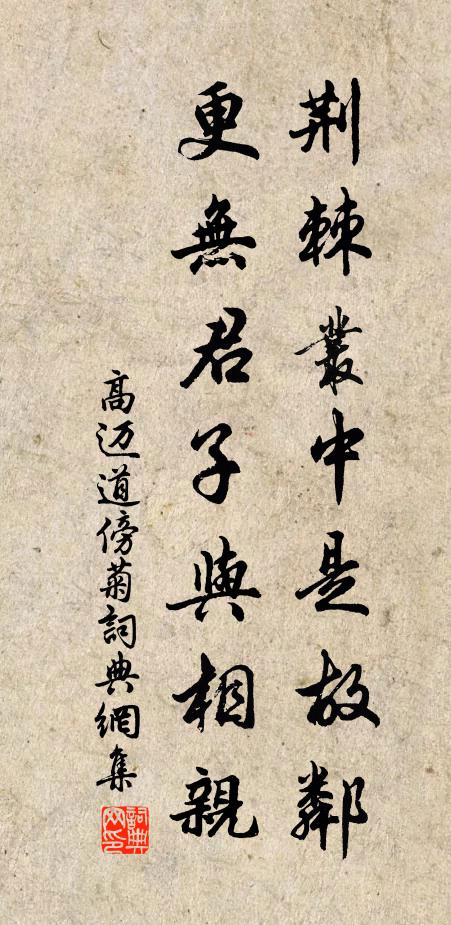 荆棘叢中是故鄰
更無君子與相親
高迈道傍菊詞典網集
詞典網印